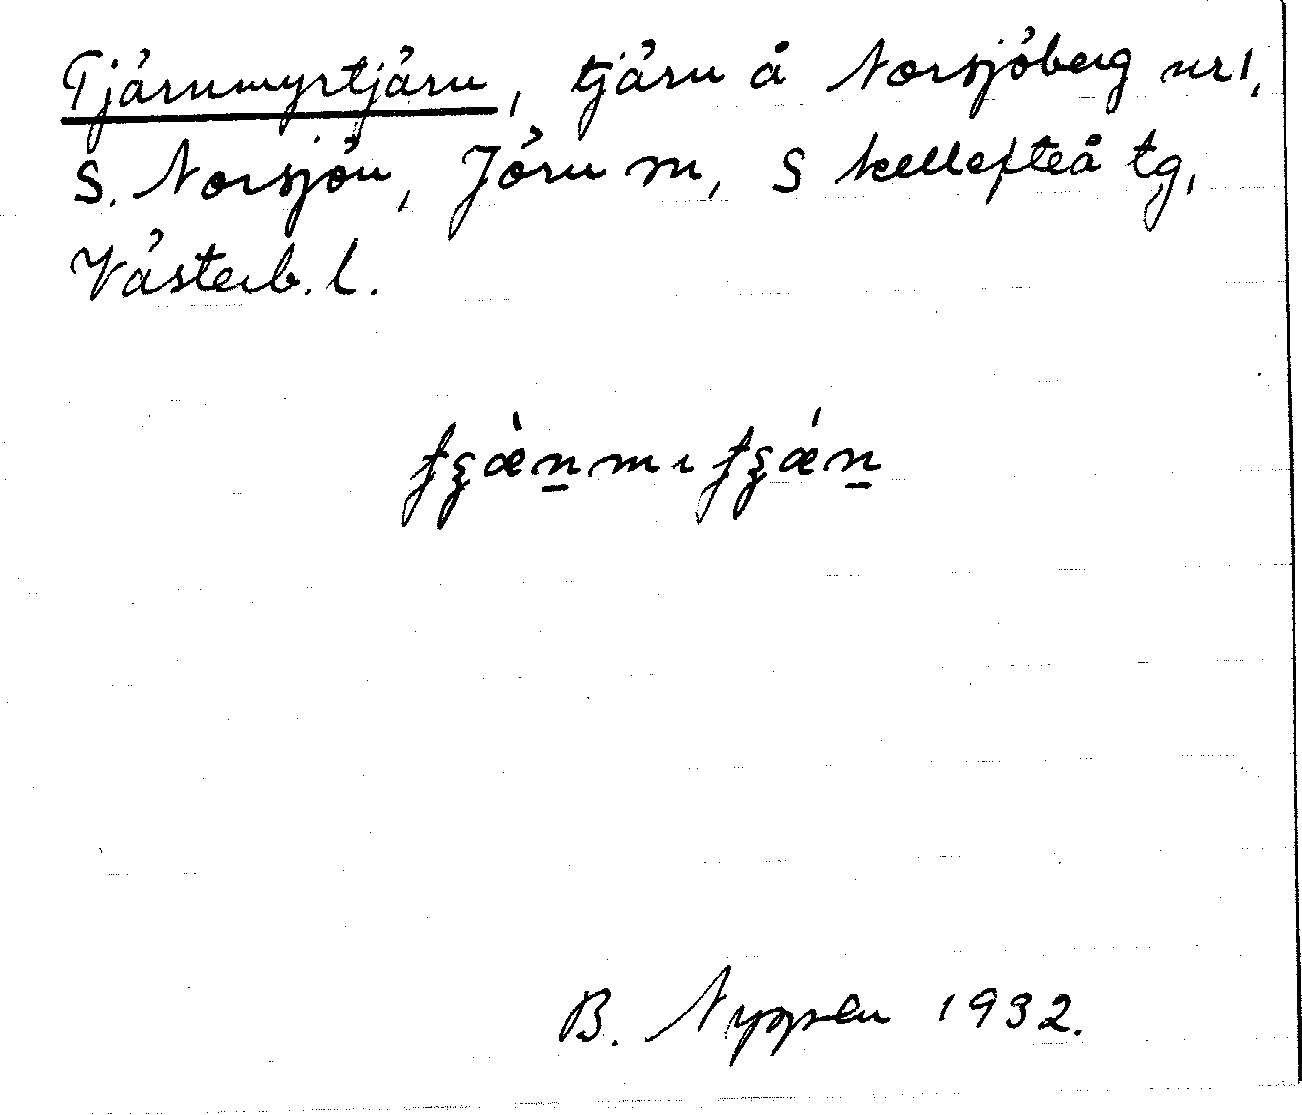 Tjärnmyrtjärn, tjärn å Norsjöberg nr 1,
S. Norsjön, Jörn m, Skellefteå tg,
Västerb. l.
B. Nyppen 1932.